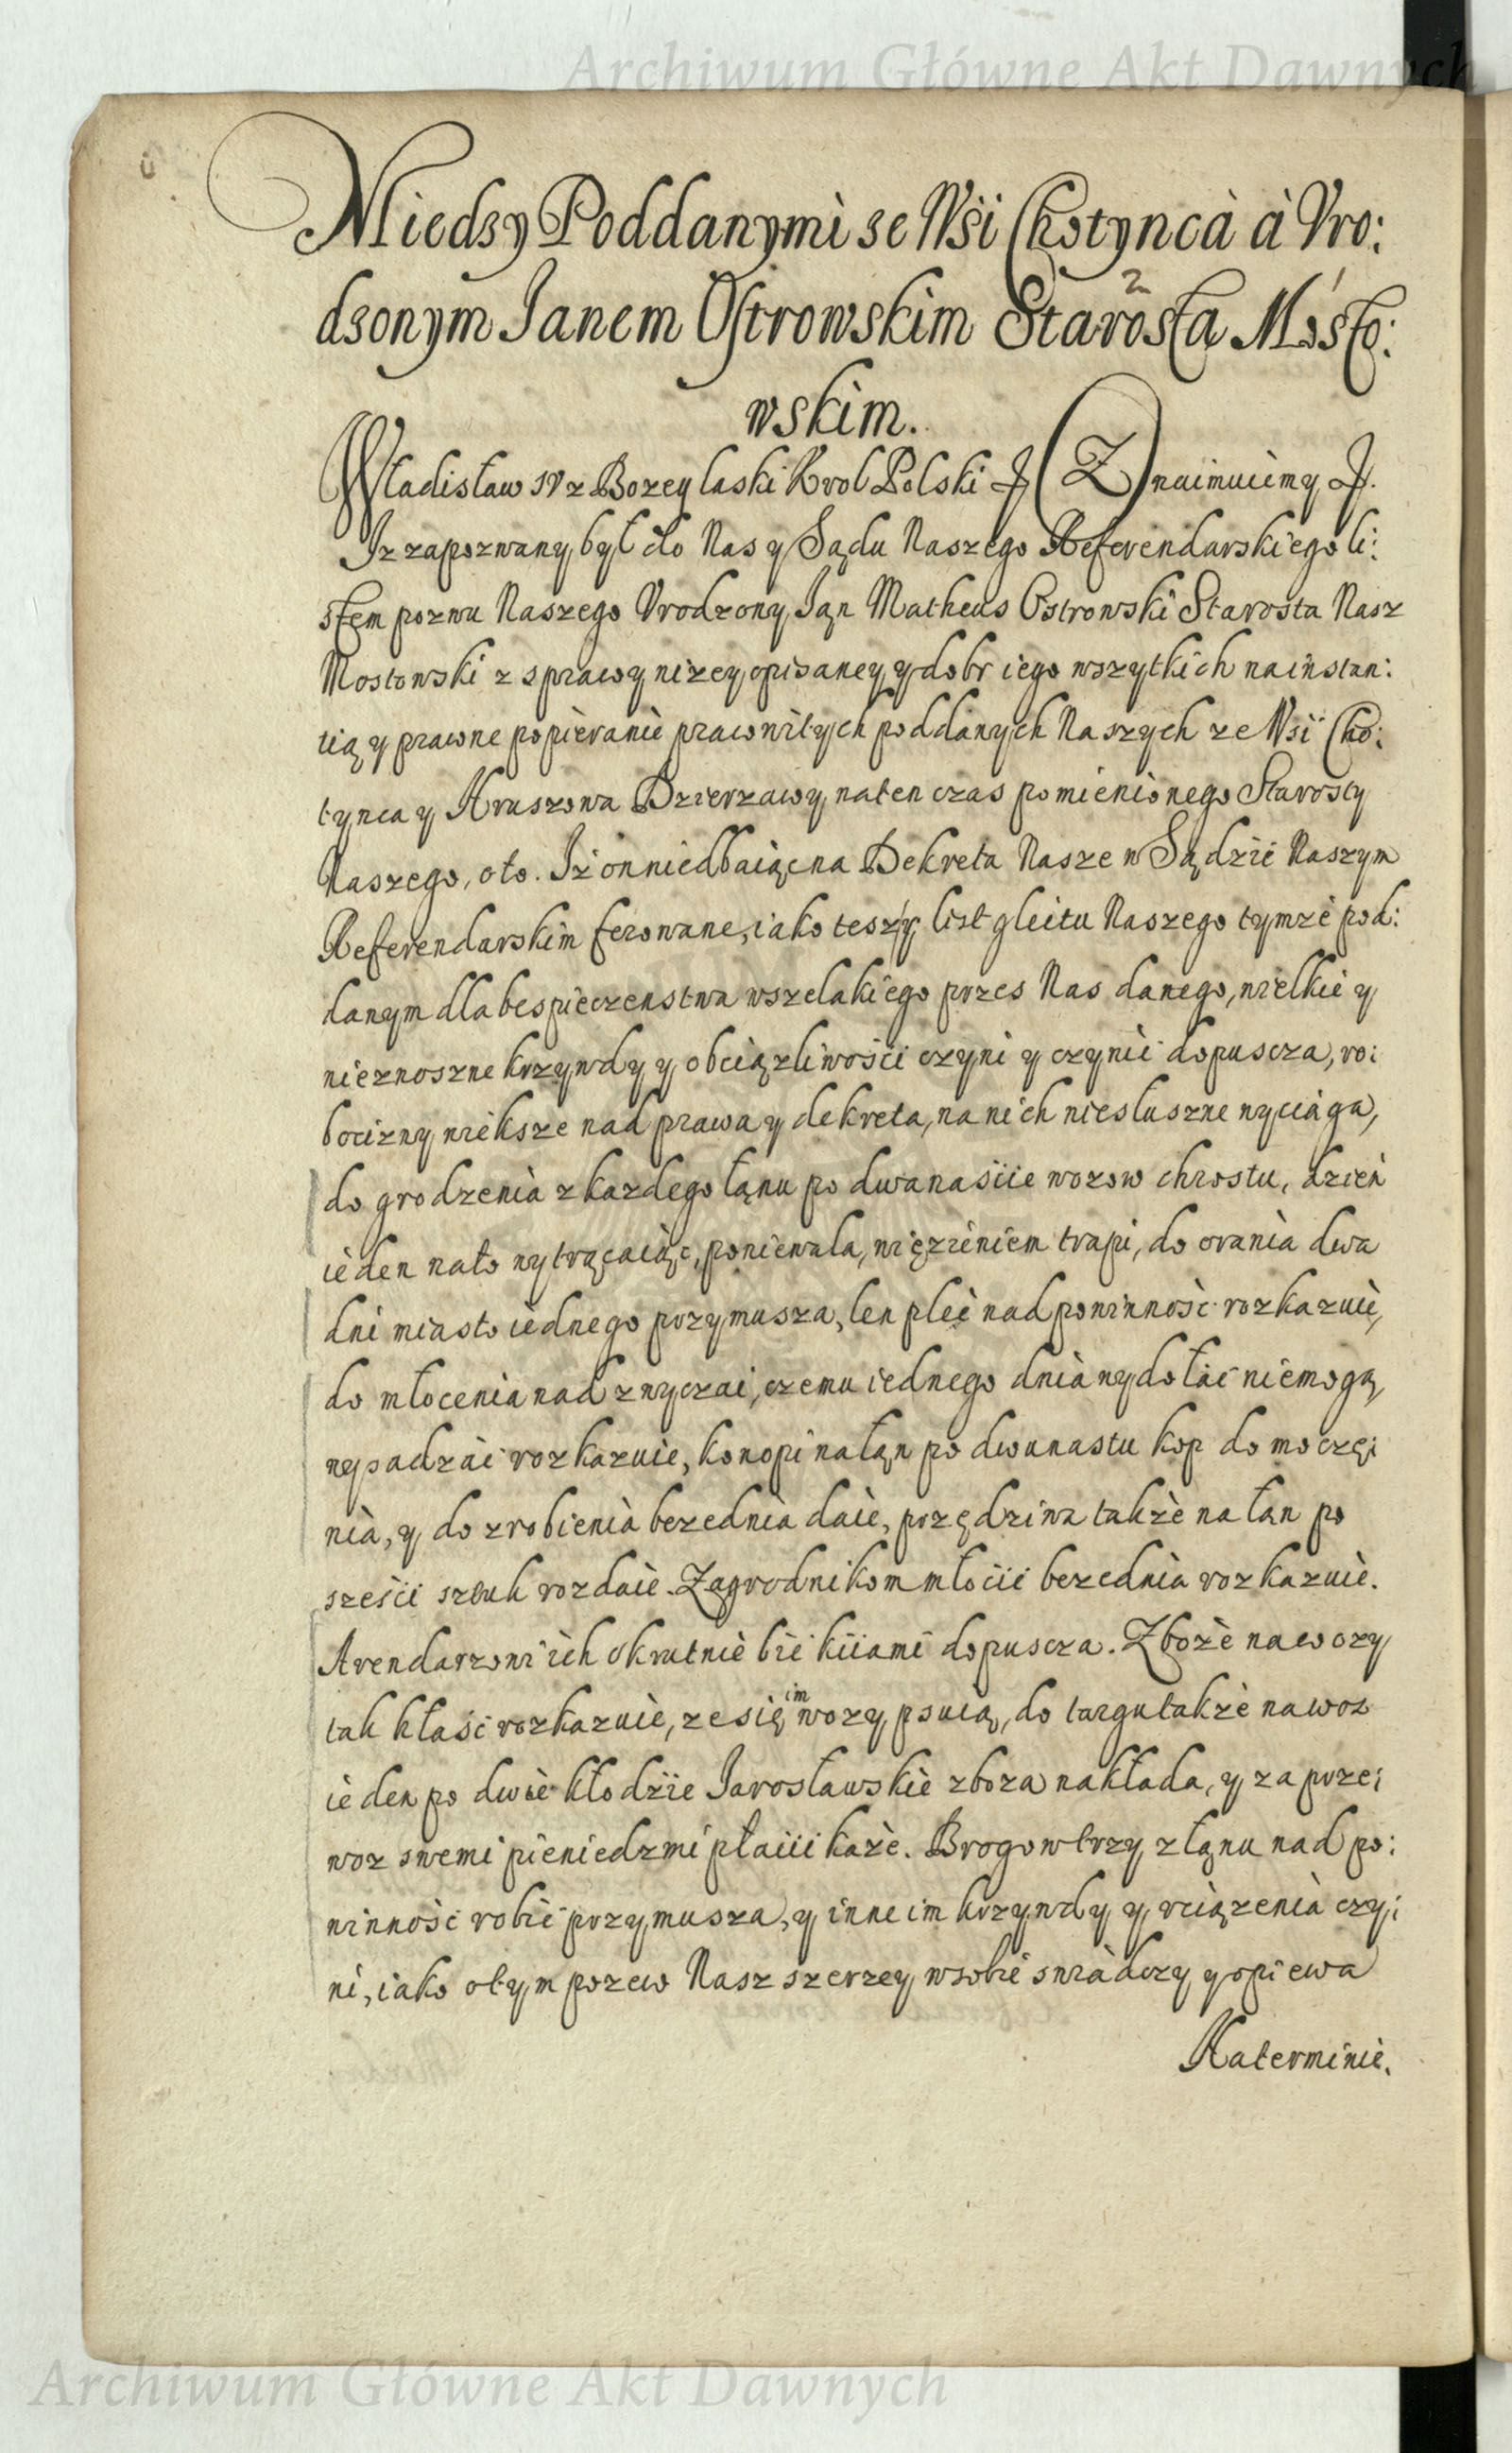 Archiwum Główne Akt Dawnych
Miedzy Poddanymi ze Wsi Chotynca à Vro:
dzonym Janem Ostrowskim Starostą Mosto:
wskim.
Władisław IV z Bozey łaski Krol Polski Znaimuiemy
Iz zapozwany był do Nas y Sądu Naszego Referendarskiego li:
stem pozwu Naszego Vrodzony Jan Matheus Ostrowski Starosta Nasz
Mostowski z sprawy nizey opisaney y dobr iego wszytkich na instan:
tią y prawne popieranie pracowitych poddanych Naszych ze Wsi Cho:
tynca y Hruszowa Dzierzawy naten czas pomienionego Starosty
Naszego, oto. Iż on niedbaiąc na Dekreta Nasze w Sądzie Naszym
Referendarskim ferowane, iako tesz y list gleitu Naszego tymze pod:
danym dla bespieczenstwa wszelakiego przes Nas danego, wielkie y
nieznoszne krzywdy y obciązliwości czyni y czynić dopuscza, ro:
bocizny wieksze nad prawa y dekreta, na nich niesłuszne wyciąga,
do grodzenia z kazdego łanu po dwanascie wozow chrostu, dzień
ieden nato wytrącaiąc, poniewala, więzieniem trapi, do orania dwa
dni miasto iednego przymusza, len pleć nad powinność rozkazuie,
do młocenia nad zwyczai, czemu iednego dnia wydołać niemogą,
wypadzać rozkazuie, konopi na łan po dwunastu kop do mocze:
nia, y do zrobienia bezednia daie, przędziwa także na łan po
sześci sztuk rozdaie. Zagrodnikom młocić bezednia rozkazuie.
Arendarzowi ich okrutnie bić kiiami dopuscza. Zboże na wozy
tak kłaść rozkazuie, ze się im wozy psuią, do targu także na woz
ieden po dwie kłodzie Jarosławskie zboza nakłada, y za prze:
woz swemi pieniedzmi płacić każe. Brogow trzy z łanu nad po:
winność robić przymusza, y inne im krzywdy y vciązenia czy:
ni, iako otym pozew Nasz szerzey wsobie swiadczy y opiewa
Naterminie.
Archiwum Główne Akt Dawnych